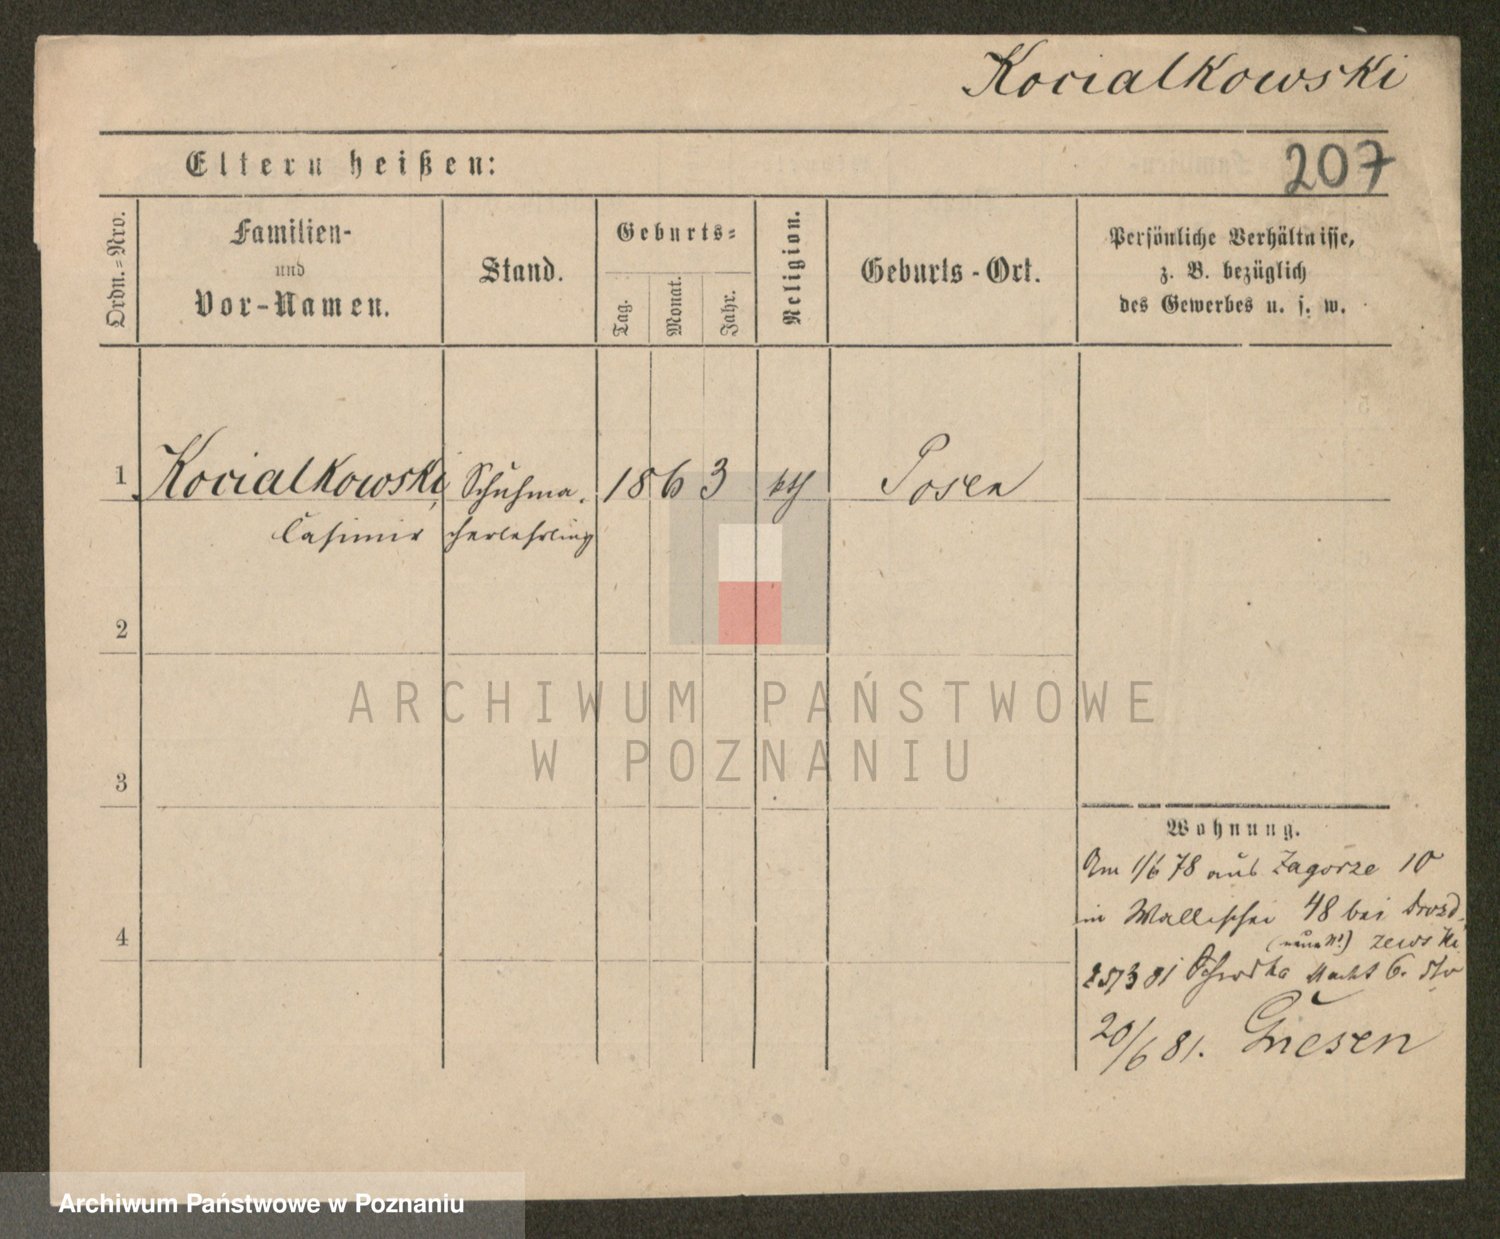 Kocialkowski
Eltern heißen:
207
Ordn.=Nro.
Familien-
und
Vor-Namen.
Stand.
Geburts=
Tag.
Monat.
Jahr.
Religion.
Geburts-Ort.
Persönliche Verhältnisse,
z. B. bezüglich
des Gewerbes u. s. w.
1 Kocialkowski, Schuhma- 1863 kth Posen
Casimir cherlehrling
2
3
4
Wohnung.
Am 1/6 78 aus Zagorze 10
in Wallischei 48 bei Drozd-
(neue N!) zewski
81 Schrodka Markt 6.
20/6 81. Gnesen
ARCHIWUM PAŃSTWOWE
W POZNANIU
Archiwum Państwowe w Poznaniu